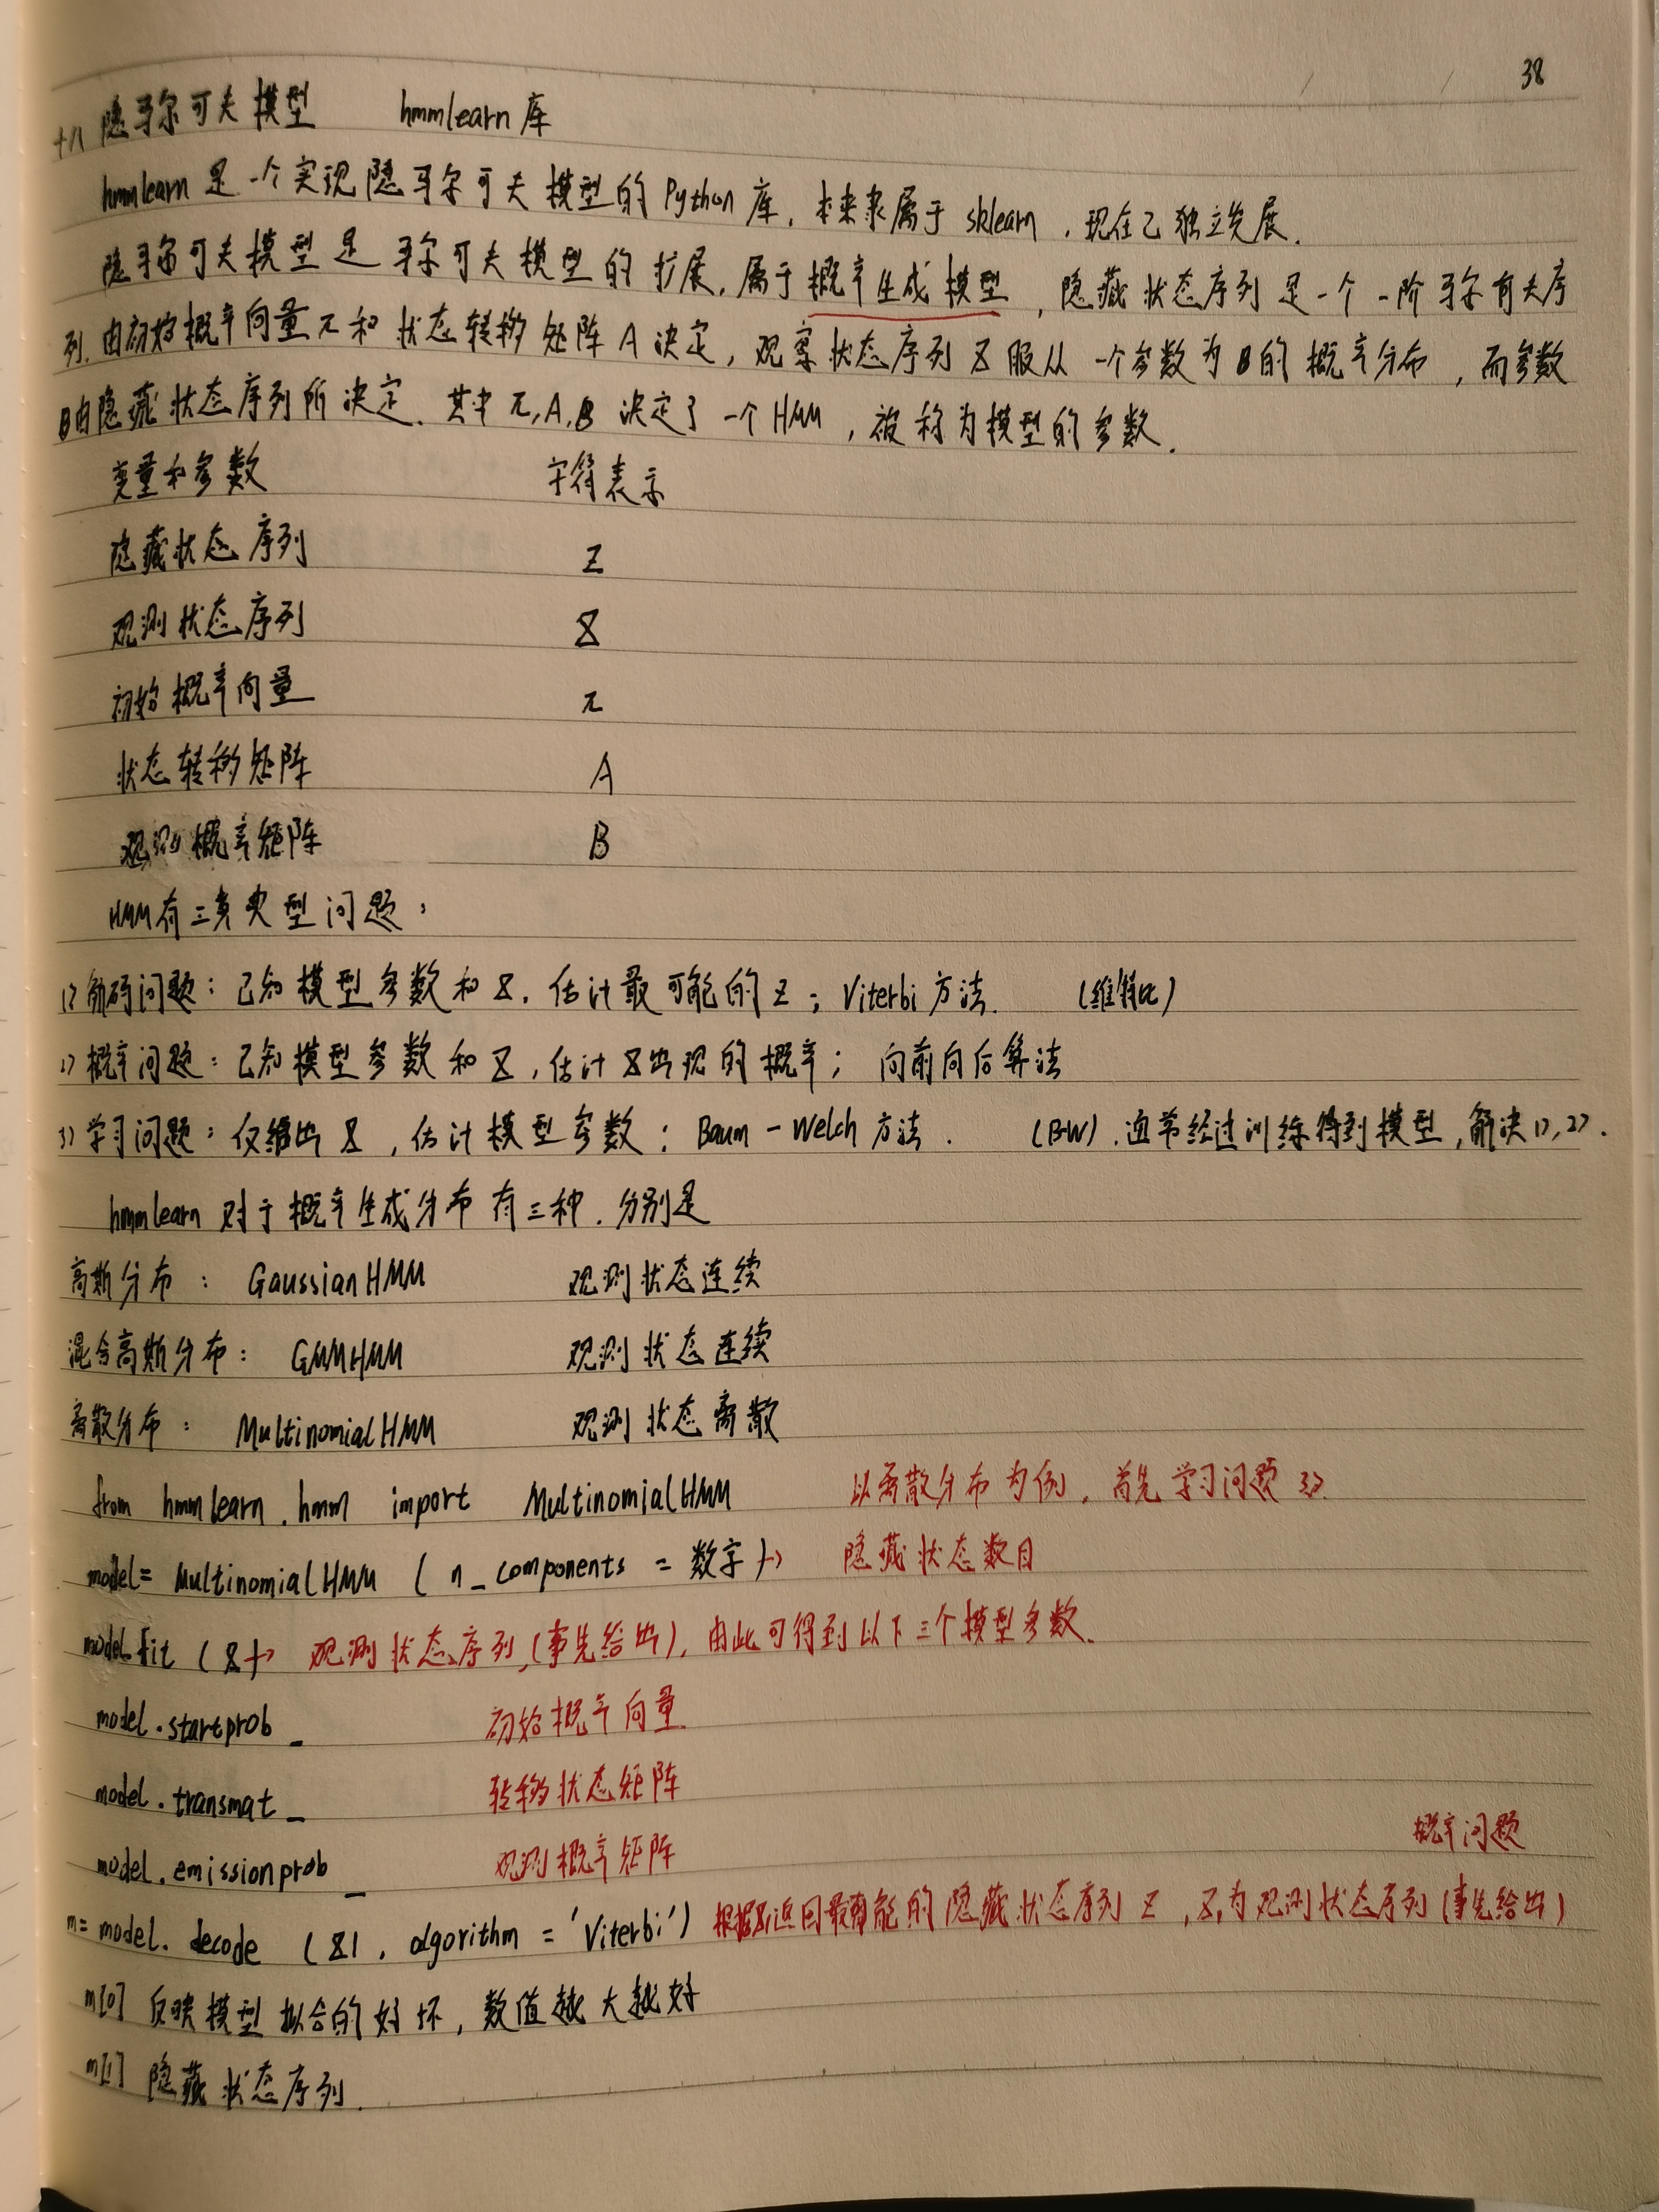 38
十八 隐马尔可夫模型 hmmlearn库
hmmlearn 是一个实现隐马尔可夫模型的Python库，本来隶属于sklearn，现在已独立发展.
隐马尔可夫模型是马尔可夫模型的扩展，属于概率生成模型，隐藏状态序列是一个一阶马尔可夫序
列，由初始概率向量π和状态转移矩阵A决定，观察状态序列X服从一个参数为B的概率分布，而参数
B由隐藏状态序列所决定，其中π,A,B决定了一个HMM，被称为模型的参数.
变量和参数 字符表示
隐藏状态序列 Z
观测状态序列 X
初始概率向量 π
状态转移矩阵 A
观测概率矩阵 B
HMM有三类典型问题：
1>解码问题：已知模型参数和X，估计最可能的Z；Viterbi方法. (维特比)
2>概率问题：已知模型参数和X，估计X出现的概率；向前向后算法
3>学习问题：仅给出X，估计模型参数；Baum-Welch方法. (BW)，通常经过训练得到模型，解决1>,2>.
hmmlearn 对于概率生成分布有三种，分别是
高斯分布： GaussianHMM 观测状态连续
混合高斯分布： GMMHMM 观测状态连续
离散分布： MultinomialHMM 观测状态离散
from hmmlearn.hmm import MultinomialHMM 以离散分布为例，首先学习问题3>
model= MultinomialHMM ( n_components = 数字 )-> 隐藏状态数目
model.fit (X)-> 观测状态序列(事先给出)，由此可得到以下三个模型参数.
model.startprob_ 初始概率向量
model.transmat_ 转移状态矩阵
model.emissionprob_ 观测概率矩阵
概率问题
m= model.decode (X1, algorithm = 'Viterbi') 根据X1返回最可能的隐藏状态序列Z，X1为观测状态序列(事先给出)
m[0] 反映模型拟合的好坏，数值越大越好
m[1] 隐藏状态序列.